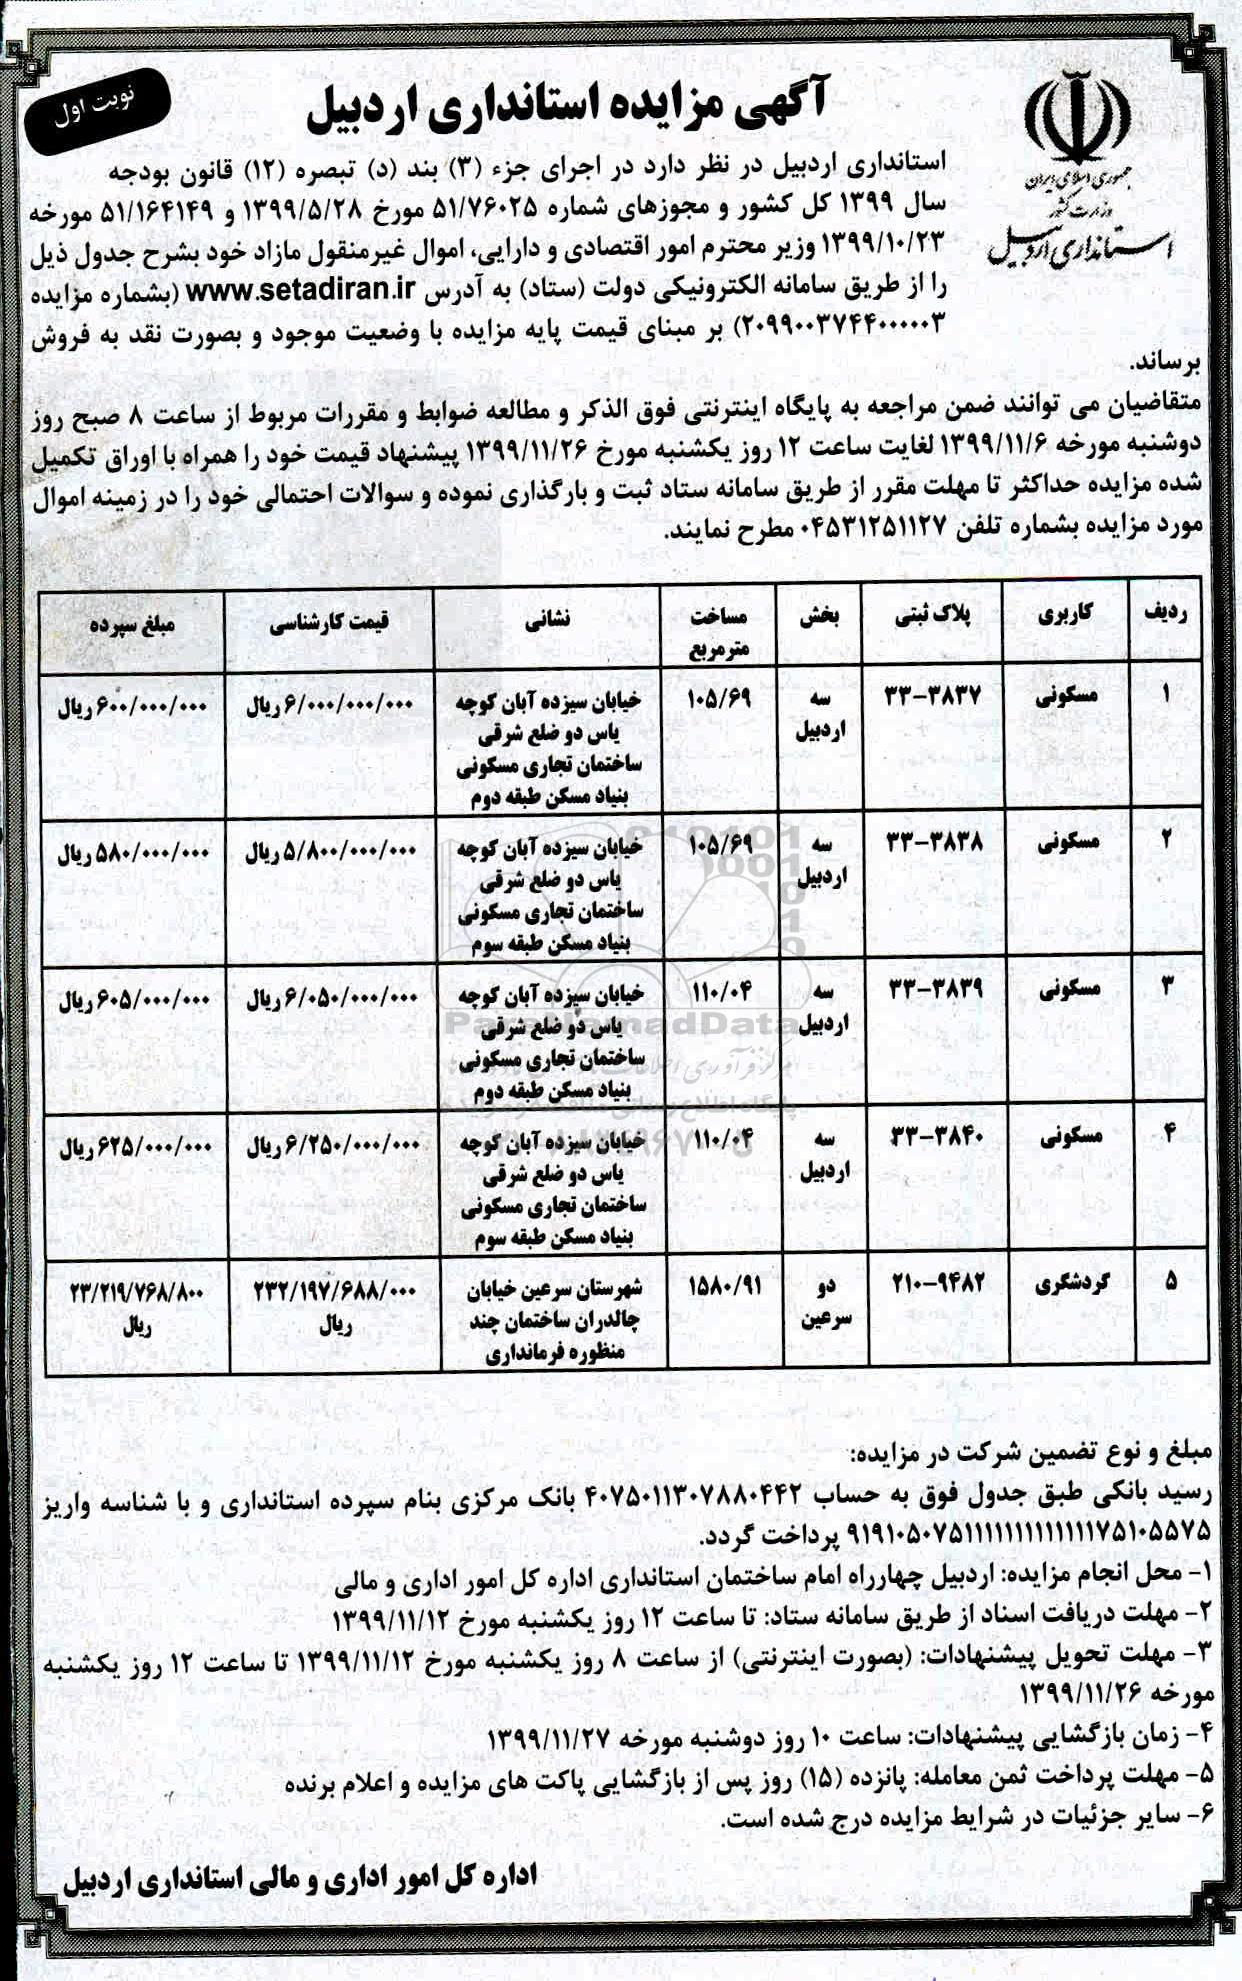 نوبت اول
جمهوری اسلامی ایران
وزارت کشور
استانداری اردبیل
آگهی مزایده استانداری اردبیل
استانداری اردبیل در نظر دارد در اجرای جزء (۳) بند (د) تبصره (۱۲) قانون بودجه
سال ۱۳۹۹ کل کشور و مجوزهای شماره ۵۱/۷۶۰۲۵ مورخ ۱۳۹۹/۵/۲۸ و ۵۱/۱۶۴۱۴۹ مورخه
۱۳۹۹/۱۰/۲۳ وزیر محترم امور اقتصادی و دارایی، اموال غیرمنقول مازاد خود بشرح جدول ذیل
را از طریق سامانه الکترونیکی دولت (ستاد) به آدرس www.setadiran.ir (بشماره مزایده
۲۰۹۹۰۰۳۷۴۴۰۰۰۰۰۳) بر مبنای قیمت پایه مزایده با وضعیت موجود و بصورت نقد به فروش
برساند.
متقاضیان می توانند ضمن مراجعه به پایگاه اینترنتی فوق الذکر و مطالعه ضوابط و مقررات مربوط از ساعت ۸ صبح روز
دوشنبه مورخه ۱۳۹۹/۱۱/۶ لغایت ساعت ۱۲ روز یکشنبه مورخ ۱۳۹۹/۱۱/۲۶ پیشنهاد قیمت خود را همراه با اوراق تکمیل
شده مزایده حداکثر تا مهلت مقرر از طریق سامانه ستاد ثبت و بارگذاری نموده و سوالات احتمالی خود را در زمینه اموال
مورد مزایده بشماره تلفن ۰۴۵۳۱۲۵۱۱۲۷ مطرح نمایند.
ردیف کاربری پلاک ثبتی بخش مساخت نشانی قیمت کارشناسی مبلغ سپرده
مترمربع
۱ مسکونی ۳۳-۳۸۳۷ سه ۱۰۵/۶۹ خیابان سیزده آبان کوچه ۶/۰۰۰/۰۰۰/۰۰۰ ریال ۶۰۰/۰۰۰/۰۰۰ ریال
اردبیل یاس دو ضلع شرقی
ساختمان تجاری مسکونی
بنیاد مسکن طبقه دوم
۲ مسکونی ۳۳-۳۸۳۸ سه ۱۰۵/۶۹ خیابان سیزده آبان کوچه ۵/۸۰۰/۰۰۰/۰۰۰ ریال ۵۸۰/۰۰۰/۰۰۰ ریال
اردبیل یاس دو ضلع شرقی
ساختمان تجاری مسکونی
بنیاد مسکن طبقه سوم
۳ مسکونی ۳۳-۳۸۳۹ سه ۱۱۰/۰۴ خیابان سیزده آبان کوچه ۶/۰۵۰/۰۰۰/۰۰۰ ریال ۶۰۵/۰۰۰/۰۰۰ ریال
اردبیل یاس دو ضلع شرقی
ساختمان تجاری مسکونی
بنیاد مسکن طبقه دوم
۴ مسکونی ۳۳-۳۸۴۰ سه ۱۱۰/۰۴ خیابان سیزده آبان کوچه ۶/۲۵۰/۰۰۰/۰۰۰ ریال ۶۲۵/۰۰۰/۰۰۰ ریال
اردبیل یاس دو ضلع شرقی
ساختمان تجاری مسکونی
بنیاد مسکن طبقه سوم
۵ گردشگری ۲۱۰-۹۴۸۲ دو ۱۵۸۰/۹۱ شهرستان سرعین خیابان ۲۳۲/۱۹۷/۶۸۸/۰۰۰ ۲۳/۲۱۹/۷۶۸/۸۰۰
سرعین چالدران ساختمان چند ریال ریال
منظوره فرمانداری
ParsNamadData
مبلغ و نوع تضمین شرکت در مزایده:
رسید بانکی طبق جدول فوق به حساب ۴۰۷۵۰۱۱۳۰۷۸۸۰۴۴۲ بانک مرکزی بنام سپرده استانداری و با شناسه واریز
پرداخت گردد.
۱- محل انجام مزایده: اردبیل چهارراه امام ساختمان استانداری اداره کل امور اداری و مالی
۲- مهلت دریافت اسناد از طریق سامانه ستاد: تا ساعت ۱۲ روز یکشنبه مورخ ۱۳۹۹/۱۱/۱۲
۳- مهلت تحویل پیشنهادات: (بصورت اینترنتی) از ساعت ۸ روز یکشنبه مورخ ۱۳۹۹/۱۱/۱۲ تا ساعت ۱۲ روز یکشنبه
مورخه ۱۳۹۹/۱۱/۲۶
۴- زمان بازگشایی پیشنهادات: ساعت ۱۰ روز دوشنبه مورخه ۱۳۹۹/۱۱/۲۷
۵- مهلت پرداخت ثمن معامله: پانزده (۱۵) روز پس از بازگشایی پاکت های مزایده و اعلام برنده
۶- سایر جزئیات در شرایط مزایده درج شده است.
اداره کل امور اداری و مالی استانداری اردبیل